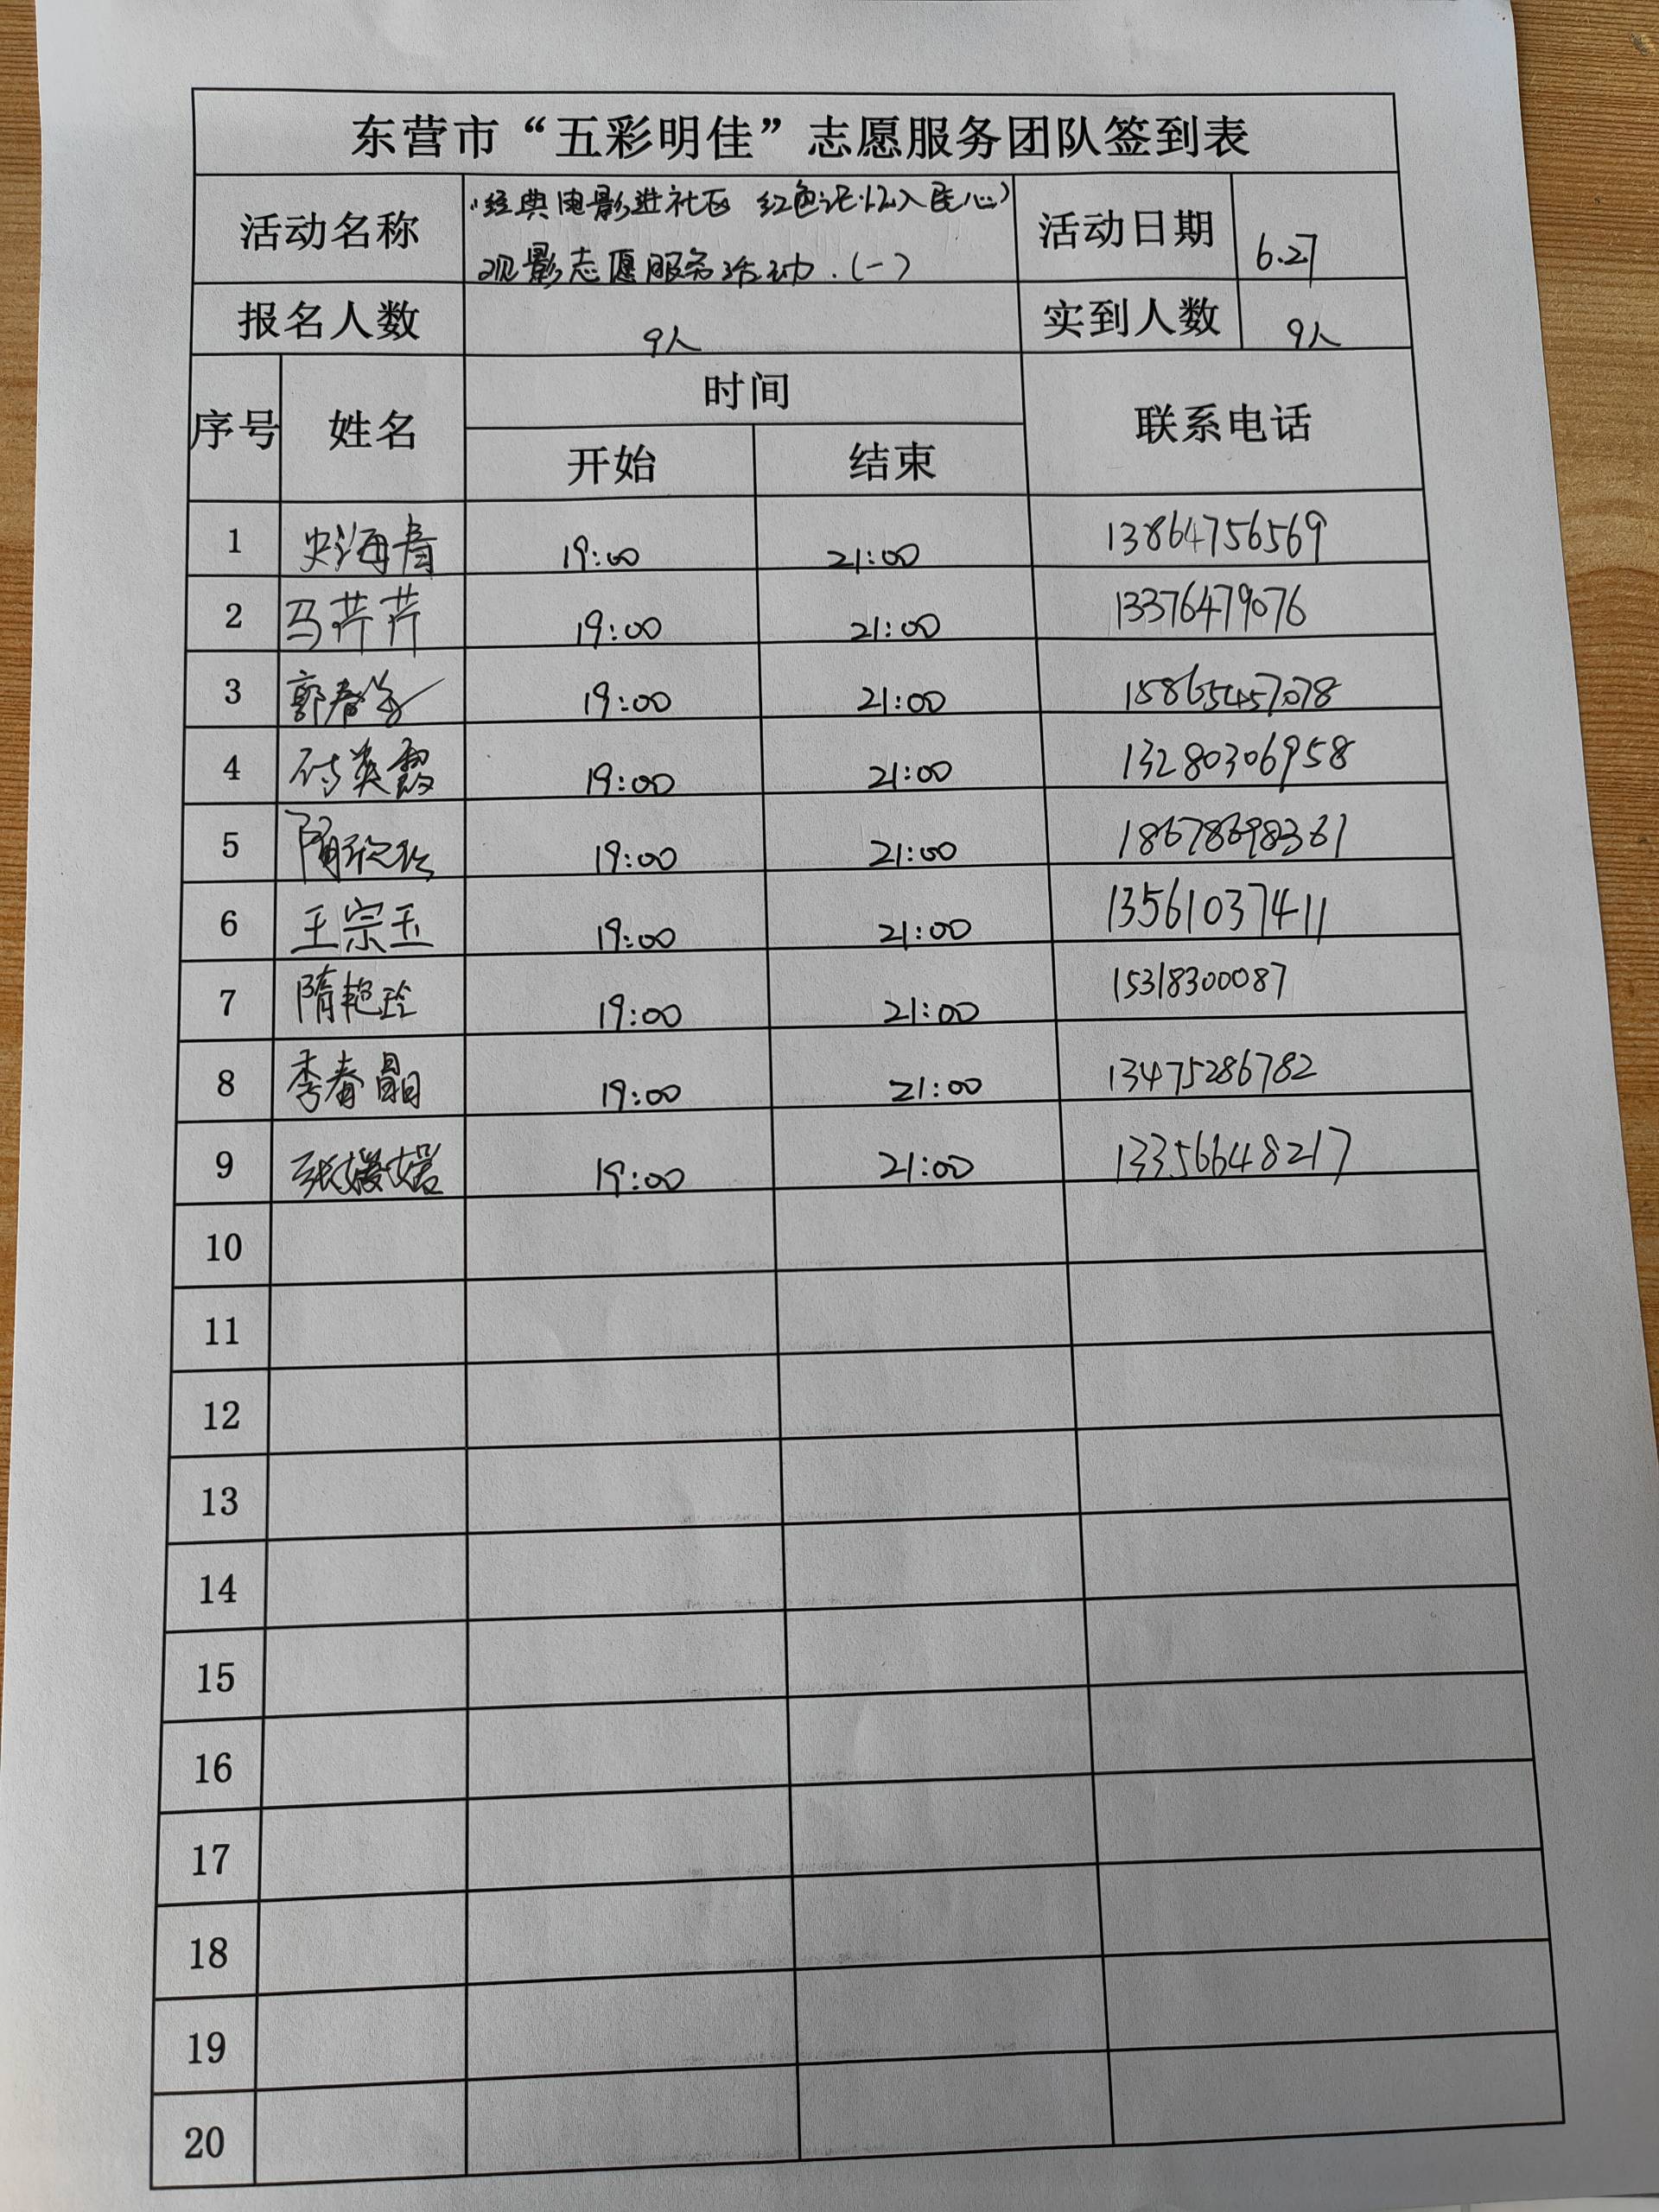 东营市“五彩明佳”志愿服务团队签到表
活动名称 “经典电影进社区 红色记忆入民心” 观影志愿服务活动.(一) 活动日期 6.27
报名人数 9人 实到人数 9人
序号 姓名 时间 联系电话
开始 结束
1 史海青 19:00 21:00 13864756569
2 马芹芹 19:00 21:00 13376479076
3 郭春 19:00 21:00 15865457078
4 付英霞 19:00 21:00 13280306958
5 隋 19:00 21:00 18678698361
6 王宗玉 19:00 21:00 13561037411
7 隋艳玲 19:00 21:00 15318300087
8 李春晶 19:00 21:00 13475286782
9 张媛媛 19:00 21:00 13356648217
10
11
12
13
14
15
16
17
18
19
20